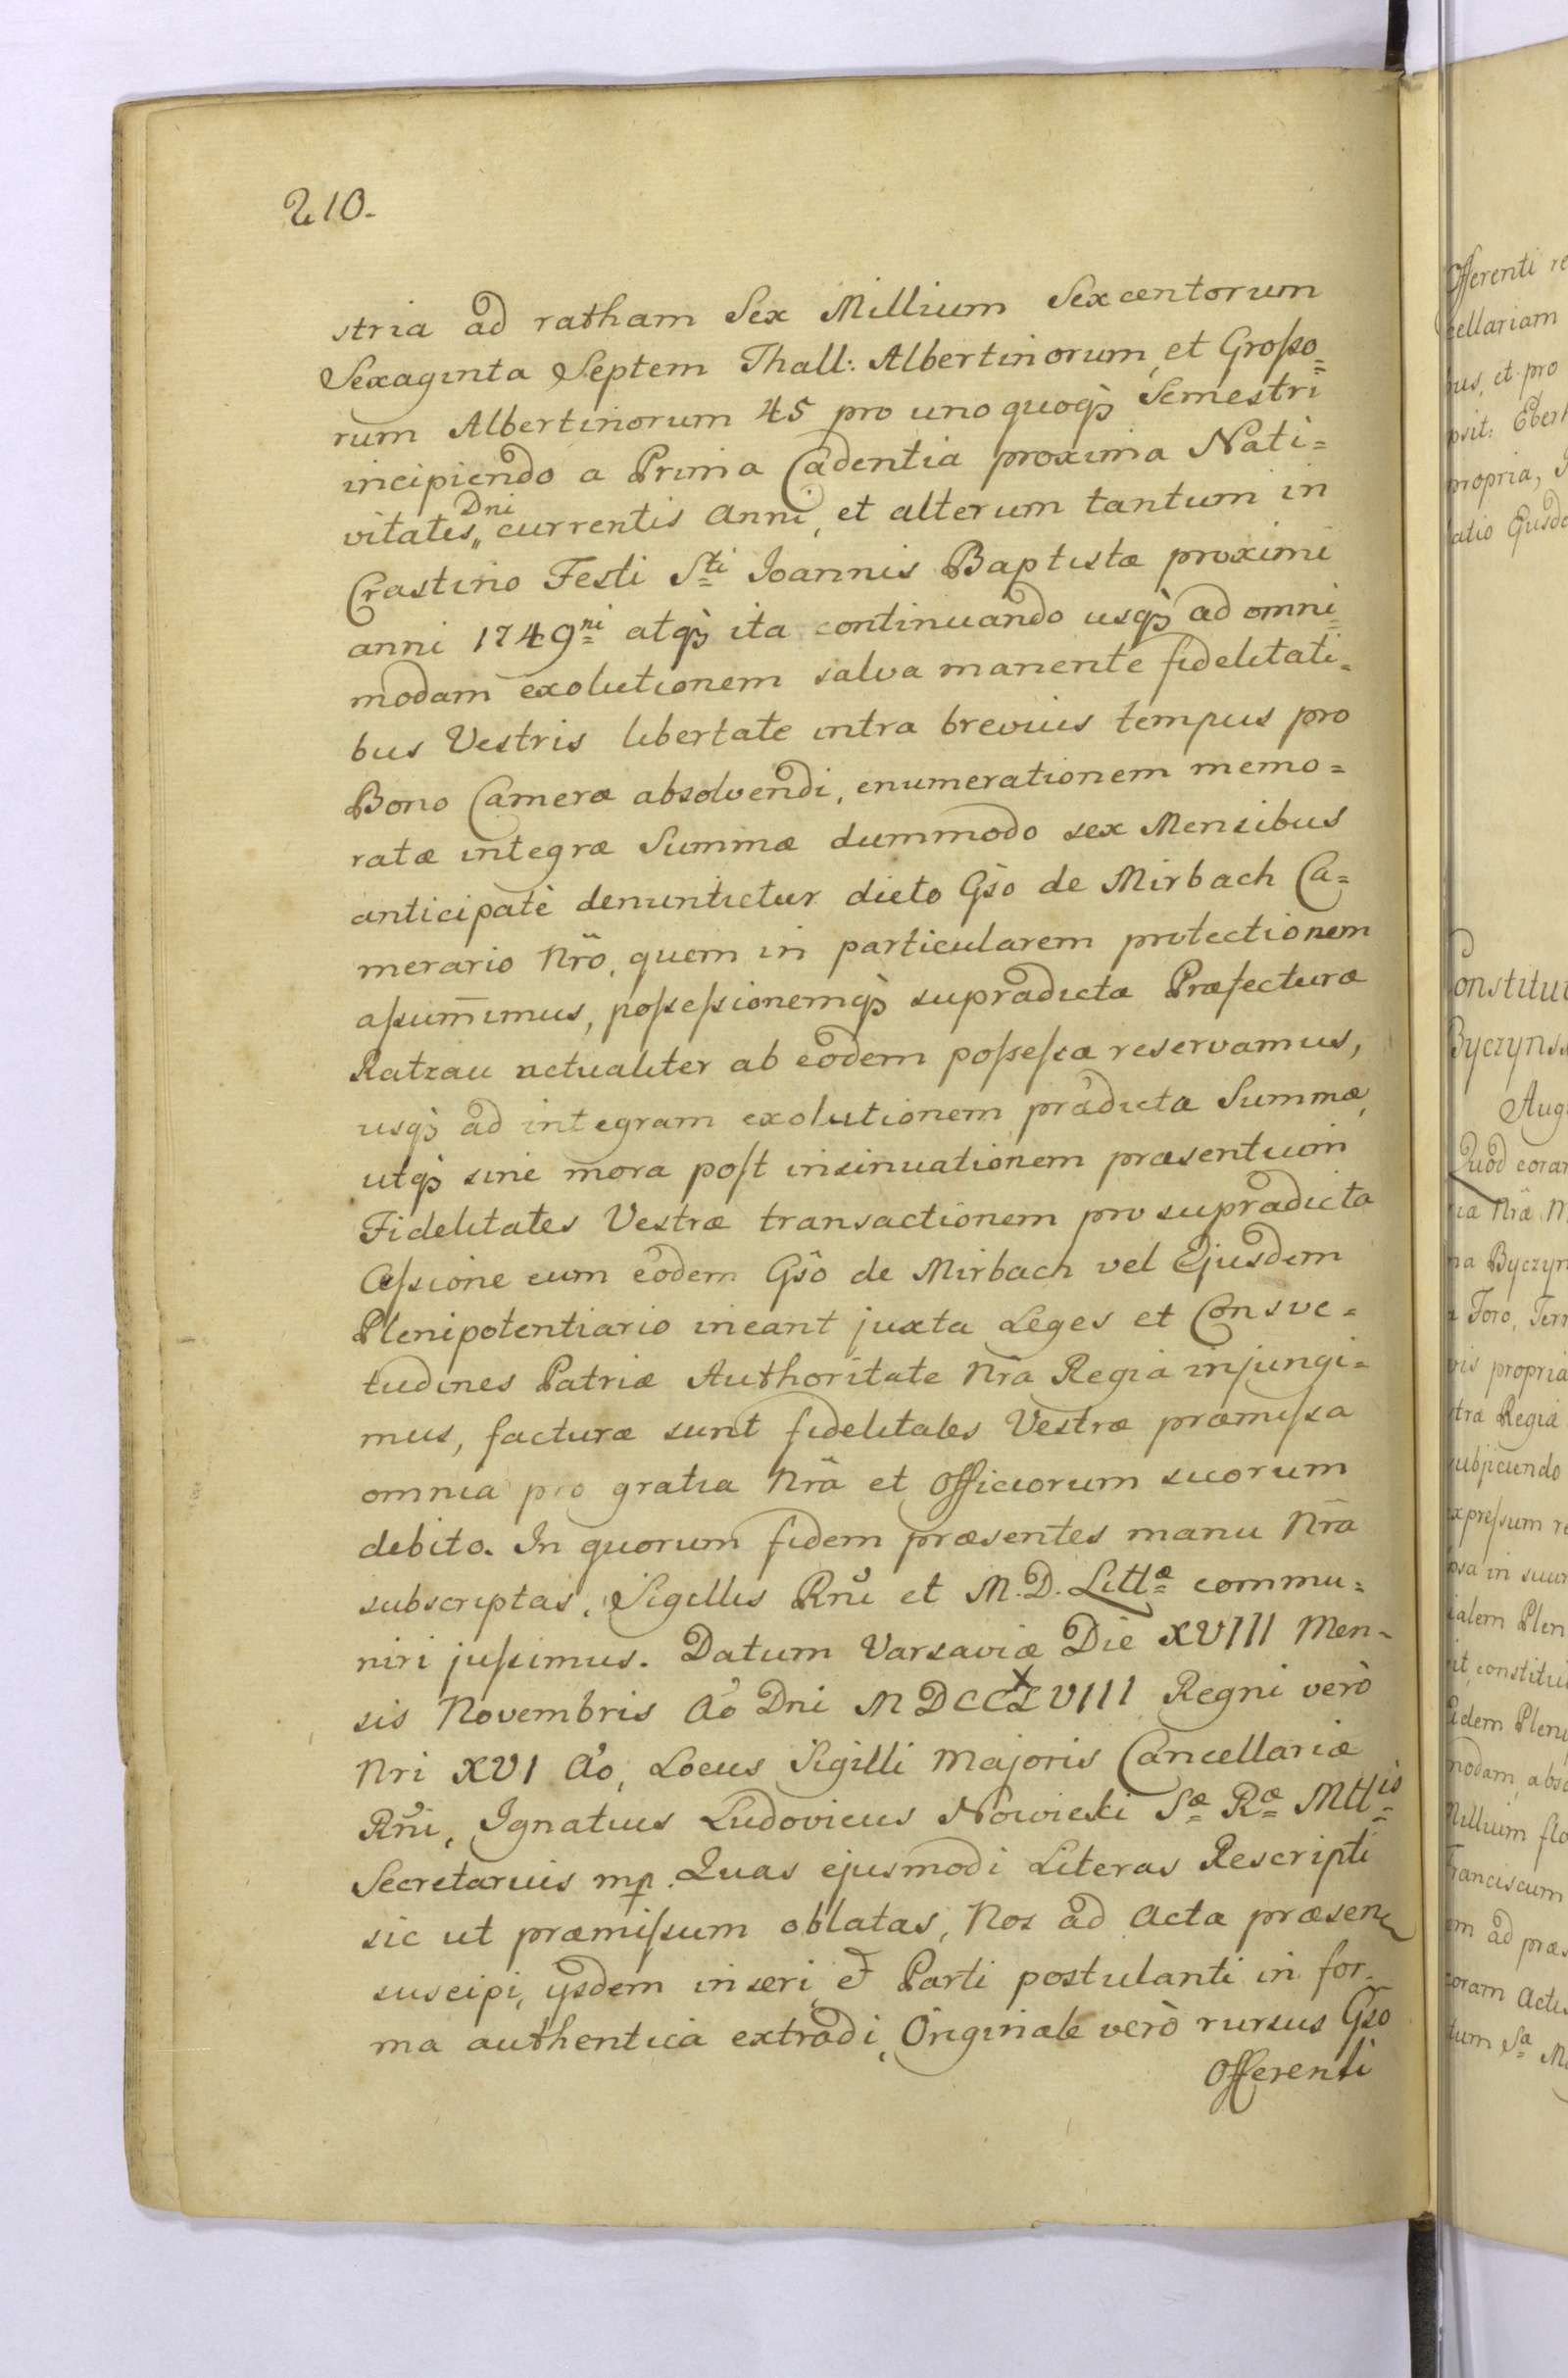 210.
stria ad ratham Sex Millium Sexcentorum
Sexaginta Septem Thall: Albertinorum, et Grosso=
rum Albertinorum 45 pro uno quoqȝ Semestri
incipiendo a Prima Cadentia proxima Nati=
vitatis„ Dni currentis anni, et alterum tantum in
Crastino Festi Sti Joannis Baptistæ proximi
anni 1749ni atqȝ ita continuando usqȝ ad omni=
modam exolutionem salva manente fidelitati=
bus Vestris libertate intra brevius tempus pro
Bono Cameræ absolvendi, enumerationem memo=
ratæ integræ Summæ dummodo sex Mensibus
anticipatè denuntietur dicto Gso de Mirbach Ca=
merario Nro, quem in particularem protectionem
assum̄imus, possessionemqȝ supradictæ Præfecturæ
Ratzau actualiter ab eodem possessæ reservamus,
usqȝ ad integram exolutionem prædictæ Summæ,
utqȝ sine mora post insinuationem præsentium
Fidelitates Vestræ transactionem pro supradicta
Cessione cum eodem Gso de Mirbach vel Ejusdem
Plenipotentiario ineant juxta Leges et Consve=
tudines Patriæ Authoritate Nra Regia injungi=
mus, facturæ sunt fidelitates Vestræ præmissa
omnia pro gratia Nra et Officiorum suorum
debito. In quorum fidem præsentes manu Nra
subscriptas, Sigillis Rni et M.D. Littæ commu=
niri jussimus. Datum Varsaviæ Die XVIII Men=
sis Novembris Ao Dni MDCCXLVIII Regni verò
Nri XVI Ao, Locus Sigilli Majoris Cancellariæ
Rni, Ignatius Ludovicus Nowicki Sæ Ræ Mttis
Secretarius mp. Quas ejusmodi Literas Rescripti
sic ut præmissum oblatas, Nos ad Acta præsen
suscipi, ijsdem inseri, et Parti postulanti in for=
ma authentica extradi, Originale verò rursus Gso
Offerenti
Offerenti re
cellariam
bus, et pro
propria,
Constitut
Byczyns
Aug
Quod coram
ia Nra
na Byczyn
Foro, Terr
propria
tra Regia
subjiciendo
xpressum re
in suum
alem Plen
it, constitui
idem Pleni
modam, abso
Millium flo
Franciscum
ad præs
coram Actis
tum Sa